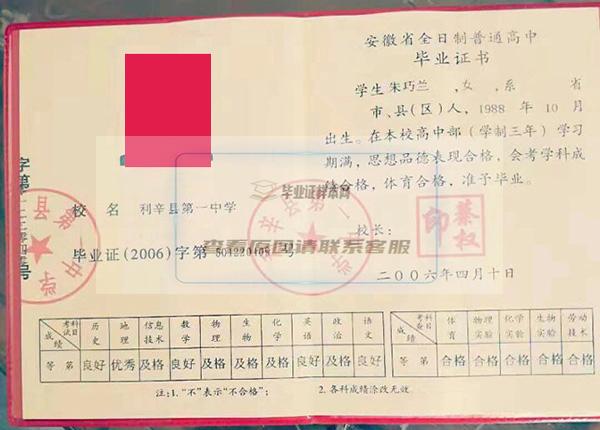 安徽省全日制普通高中
毕业证书
学生 朱巧兰 ,女,系 省
市、县(区)人, 1988 年 10 月
出生。在本校高中部(学制三年)学习
期满,思想品德表现合格,会考学科成
绩合格,体育合格,准予毕业。
校 名 利辛县第一中学
校长:
蔡权
印
毕业证(2006)字第 号
二〇〇六年四月十日
毕业证样本网
查看原图请联系客服
字第
号
考试科目 历史 地理 信息技术 数学 物理 生物 化学 英语 政治 语文
成绩
等第 良好 优秀 及格 良好 及格 及格 及格 良好 良好 良好
考查科目 体育 物理实验 化学实验 生物实验 劳动技术
成绩
等第 合格 合格 合格 合格 合格
注:1."不"表示"不合格"; 2.各科成绩涂改无效.